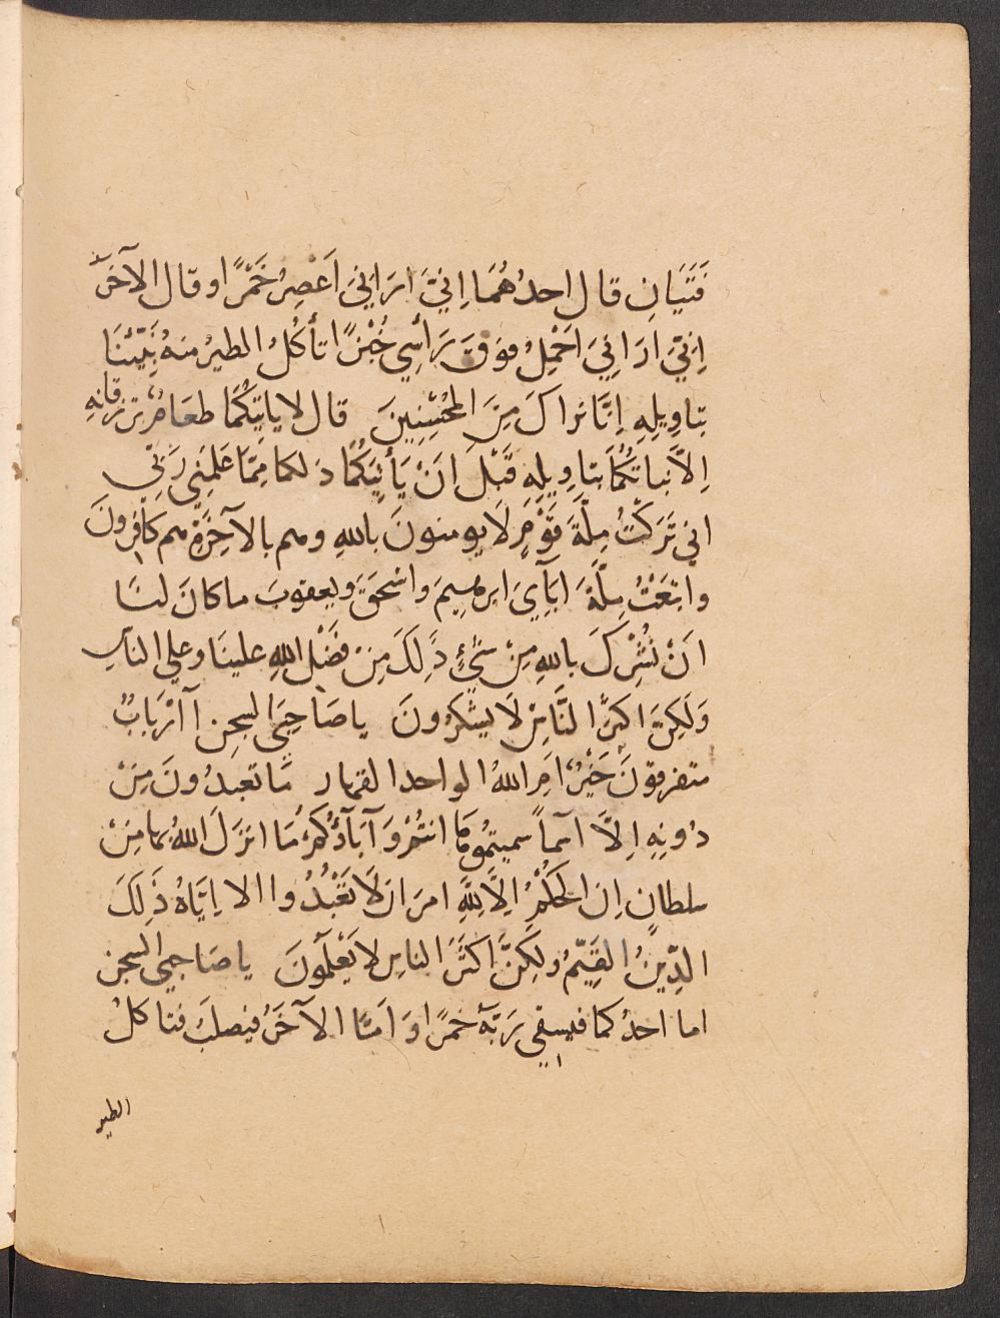 فَتَيَانِ قال احدُهُمَا اِنِّيَ ارَانِيَ اَعْصِرُ خَمْرًا وقال الآخَرُ
اِنِّيَ ارَانِيَ اَحْمِلُ فوَقَ رَأسِي خُبْزًا تأكُلُ الطيرُ منهُ نَبِّئنَا
بتاوِيلِهِ اِنَّا نراكَ مِنَ المحُسِنِينَ قال لا ياتِيكُمَا طعَامٌ ترزقانهِ
اِلاَّ نباتكُمَا بتاوِيلِهِ قَبْلَ اِنَ يَأتِيَكُمَا ذلكما مِمَّا عَلمَنِي رَبِّي
اني تَرَكْتُ مِلَّةَ قَوْمٍ لَا يومنونَ باللهِ وهم بالآخِرَةِ هم كافِرونَ
واتبَعْتُ مِلَّةَ ابَآءِيَ ابرهيمَ واسْحَقَ ويعقوبَ ما كانَ لنَا
اَنْ نُشْرِكَ باللهِ مِنْ شَيْءٍ ذَلِكَ مِنْ فَضْلِ اللهِ علينَا وعلي الناسِ
وَلَكِنَّ اكثرَ النَّاسِ لَا يشكرُونَ ياصَاحِبَيِ السجنِ أارْبَابٌ
متفرقونَ خَيْرٌ اَمِ اللهُ الواحد القهار مَا تعبدُونَ مِنْ
دُونِهِ اِلاَّ اسمآً سميتُمُوهَا انتُمْ وَآبَآؤُكُمْ مَا انزَلَ اللهُ بها مِنْ
سلطانٍ اِن الحُكْمُ اِلاَّ لِلَّهِ امرَ ان لَا تَعْبُدُوا الا اِيَّاهُ ذَلِكَ
الدِّينُ القَيِّمُ ولكِنَّ اَكثَرَ الناسِ لا يَعْلَمُونَ ياصَاحِبَيِ السجن
اما احدُكما فيسقي رَبَّهُ خمرًا وَامَّا الآخَرُ فيصلبَ فتاكلُ
الطير